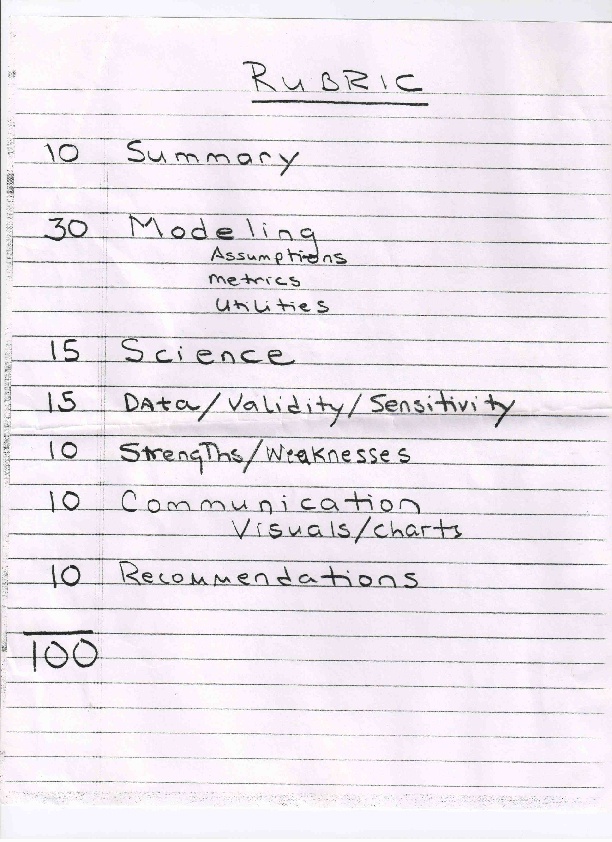 RUBRIC
10 Summary
30 Modeling
Assumptions
Metrics
Utilities
15 Science
15 Data/Validity/Sensitivity
10 Strengths/Weaknesses
10 Communication
Visuals/Charts
10 Recommendations
100